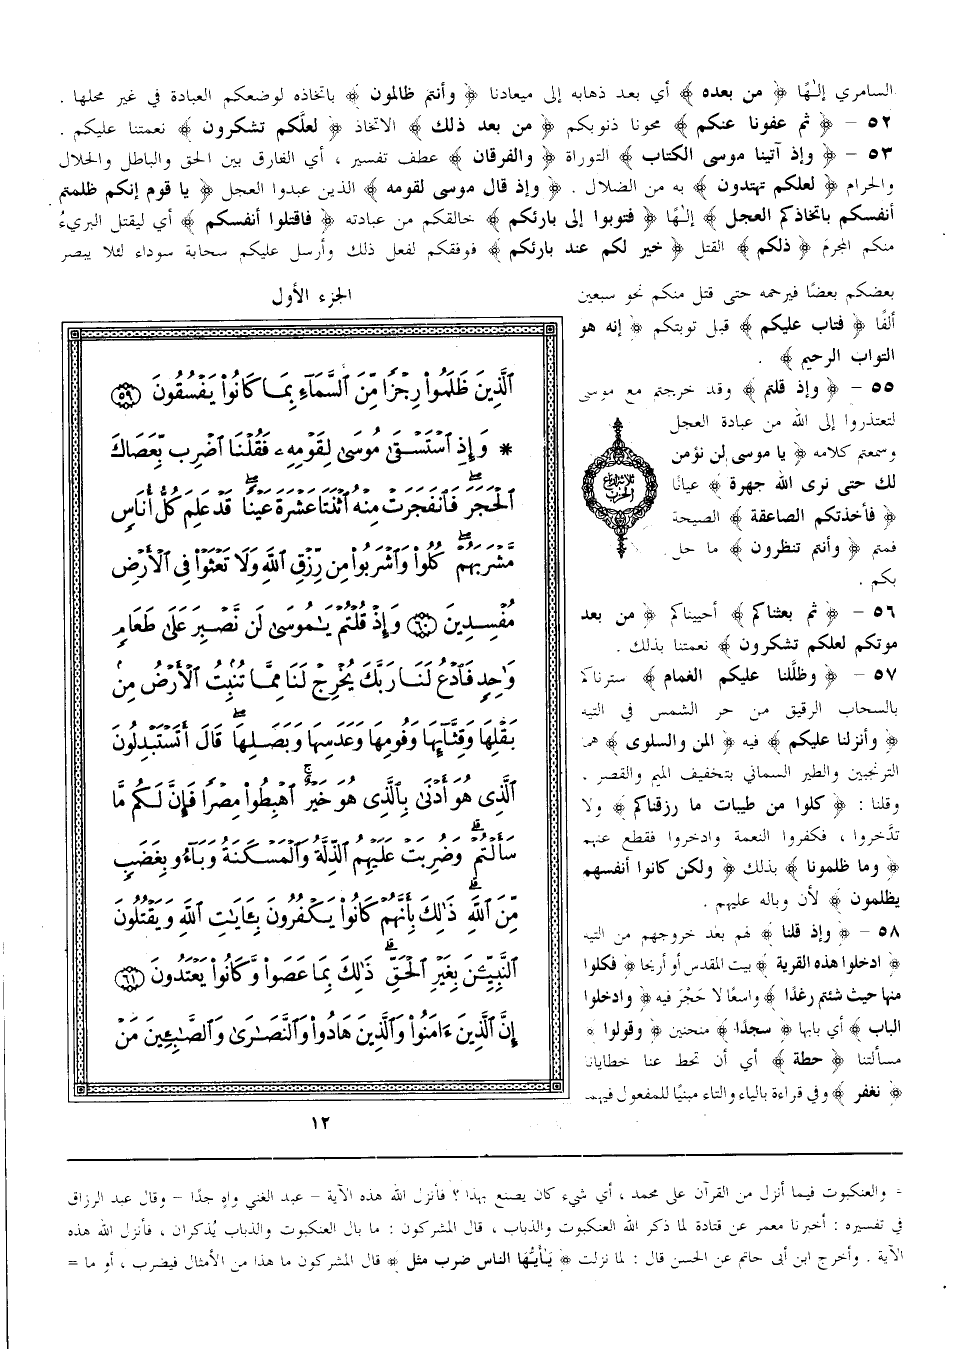 السامري إلـٰهًا ﴿ من بعده ﴾ أي بعد ذهابه إلى ميعادنا ﴿ وأنتم ظالمون ﴾ باتخاذه لوضعكم العبادة في غير محلها .
٥٢ - ﴿ ثم عفونا عنكم ﴾ محونا ذنوبكم ﴿ من بعد ذلك ﴾ الاتخاذ ﴿ لعلَّكم تشكرون ﴾ نعمتنا عليكم .
٥٣ - ﴿ وإذ آتينا موسى الكتاب ﴾ التوراة ﴿ والفرقان ﴾ عطف تفسير ، أي الفارق بين الحق والباطل والحلال
والحرام ﴿ لعلكم تهتدون ﴾ به من الضلال . ﴿ وإذ قال موسى لقومه ﴾ الذين عبدوا العجل ﴿ يا قوم إنكم ظلمتم
أنفسكم باتخاذكم العجل ﴾ إلـٰهًا ﴿ فتوبوا إلى بارئكم ﴾ خالقكم من عبادته ﴿ فاقتلوا أنفسكم ﴾ أي ليقتل البريءُ
منكم المجرمَ ﴿ ذلكم ﴾ القتل ﴿ خير لكم عند بارئكم ﴾ فوفقكم لفعل ذلك وأرسل عليكم سحابة سوداء لئلا يبصر
بعضكم بعضًا فيرحمه حتى قتل منكم نحو سبعين
ألفًا ﴿ فتاب عليكم ﴾ قبل توبتكم ﴿ إنه هو
التواب الرحيم ﴾ .
٥٥ - ﴿ وإذ قلتم ﴾ وقد خرجتم مع موسى
لتعتذروا إلى الله من عبادة العجل
وسمعتم كلامه ﴿ يا موسى لن نؤمن
لك حتى نرى الله جهرة ﴾ عيانًا
﴿ فأخذتكم الصاعقة ﴾ الصيحة
فمتم ﴿ وأنتم تنظرون ﴾ ما حل
بكم .
٥٦ - ﴿ ثم بعثناكم ﴾ أحييناكم ﴿ من بعد
موتكم لعلكم تشكرون ﴾ نعمتنا بذلك .
٥٧ - ﴿ وظلَّلنا عليكم الغمام ﴾ سترناكم
بالسحاب الرقيق من حر الشمس في التيه
﴿ وأنزلنا عليكم ﴾ فيه ﴿ المن والسلوى ﴾ هما
الترنجبين والطير السماني بتخفيف الميم والقصر .
وقلنا : ﴿ كلوا من طيبات ما رزقناكم ﴾ ولا
تدَّخروا ، فكفروا النعمة وادخروا فقطع عنهم
﴿ وما ظلمونا ﴾ بذلك ﴿ ولكن كانوا أنفسهم
يظلمون ﴾ لأن وباله عليهم .
٥٨ - ﴿ وإذ قلنا ﴾ لهم بعد خروجهم من التيه
﴿ ادخلوا هذه القرية ﴾ بيت المقدس أو أريحا ﴿ فكلوا
منها حيث شئتم رغدًا ﴾ واسعًا لا حَجْرَ فيه ﴿ وادخلوا
الباب ﴾ أي بابها ﴿ سجدًا ﴾ منحنين ﴿ وقولوا ﴾
مسألتنا ﴿ حطة ﴾ أي أن تحط عنا خطايانا
﴿ نغفر ﴾ وفي قراءة بالياء والتاء مبنيًا للمفعول فيهما
الجزء الأول
ٱلَّذِينَ ظَلَمُوا۟ رِجْزًا مِّنَ ٱلسَّمَآءِ بِمَا كَانُوا۟ يَفْسُقُونَ ٥٩
* وَإِذِ ٱسْتَسْقَىٰ مُوسَىٰ لِقَوْمِهِۦ فَقُلْنَا ٱضْرِب بِّعَصَاكَ
ٱلْحَجَرَ ۖ فَٱنفَجَرَتْ مِنْهُ ٱثْنَتَا عَشْرَةَ عَيْنًا ۖ قَدْ عَلِمَ كُلُّ أُنَاسٍ
مَّشْرَبَهُمْ ۖ كُلُوا۟ وَٱشْرَبُوا۟ مِن رِّزْقِ ٱللَّهِ وَلَا تَعْثَوْا۟ فِى ٱلْأَرْضِ
مُفْسِدِينَ ٦٠ وَإِذْ قُلْتُمْ يَـٰمُوسَىٰ لَن نَّصْبِرَ عَلَىٰ طَعَامٍ
وَٰحِدٍ فَٱدْعُ لَنَا رَبَّكَ يُخْرِجْ لَنَا مِمَّا تُنۢبِتُ ٱلْأَرْضُ مِنۢ
بَقْلِهَا وَقِثَّآئِهَا وَفُومِهَا وَعَدَسِهَا وَبَصَلِهَا ۖ قَالَ أَتَسْتَبْدِلُونَ
ٱلَّذِى هُوَ أَدْنَىٰ بِٱلَّذِى هُوَ خَيْرٌ ۚ ٱهْبِطُوا۟ مِصْرًا فَإِنَّ لَكُم مَّا
سَأَلْتُمْ ۗ وَضُرِبَتْ عَلَيْهِمُ ٱلذِّلَّةُ وَٱلْمَسْكَنَةُ وَبَآءُو بِغَضَبٍ
مِّنَ ٱللَّهِ ۗ ذَٰلِكَ بِأَنَّهُمْ كَانُوا۟ يَكْفُرُونَ بِـَٔايَـٰتِ ٱللَّهِ وَيَقْتُلُونَ
ٱلنَّبِيِّـۧنَ بِغَيْرِ ٱلْحَقِّ ۗ ذَٰلِكَ بِمَا عَصَوا۟ وَّكَانُوا۟ يَعْتَدُونَ ٦١
إِنَّ ٱلَّذِينَ ءَامَنُوا۟ وَٱلَّذِينَ هَادُوا۟ وَٱلنَّصَـٰرَىٰ وَٱلصَّـٰبِـِٔينَ مَنْ
ثلاثة أرباع
الحزب
١٢
= والعنكبوت فيما أنزل من القرآن على محمد ، أي شيء كان يصنع بهذا ؟ فأنزل الله هذه الآية - عبد الغني واهٍ جدًا - وقال عبد الرزاق
في تفسيره : أخبرنا معمر عن قتادة لما ذكر الله العنكبوت والذباب ، قال المشركون : ما بال العنكبوت والذباب يُذكران ، فأنزل الله هذه
الآية . وأخرج ابن أبى حاتم عن الحسن قال : لما نزلت ﴿ يَـٰأَيُّهَا الناس ضرب مثل ﴾ قال المشركون ما هذا من الأمثال فيضرب ، أو ما =